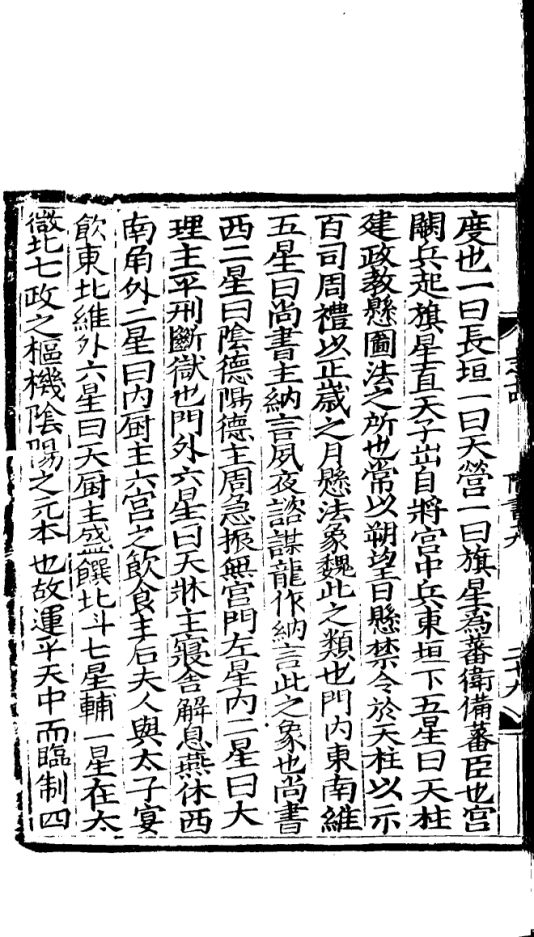 度也一曰長垣一曰天營一曰旗星為蕃衛備蕃臣也宮
闕兵起旗星直天子出自將宮中兵東垣下五星曰天柱
建政教懸圖法之所也常以朔望日懸禁令於天柱以示
百司周禮以正歲之月懸法象魏此之類也門內東南維
五星曰尚書主納言夙夜諮謀龍作納言此之象也尚書
西二星曰陰德陽德主周急振無宮門左星內二星曰大
理主平刑斷獄也門外六星曰天牀主寢舍解息燕休西
南角外二星曰內厨主六宮之飲食主后夫人與太子宴
飲東北維外六星曰天厨主盛饌北斗七星輔一星在太
微北七政之樞機陰陽之元本也故運乎天中而臨制四
隋書九